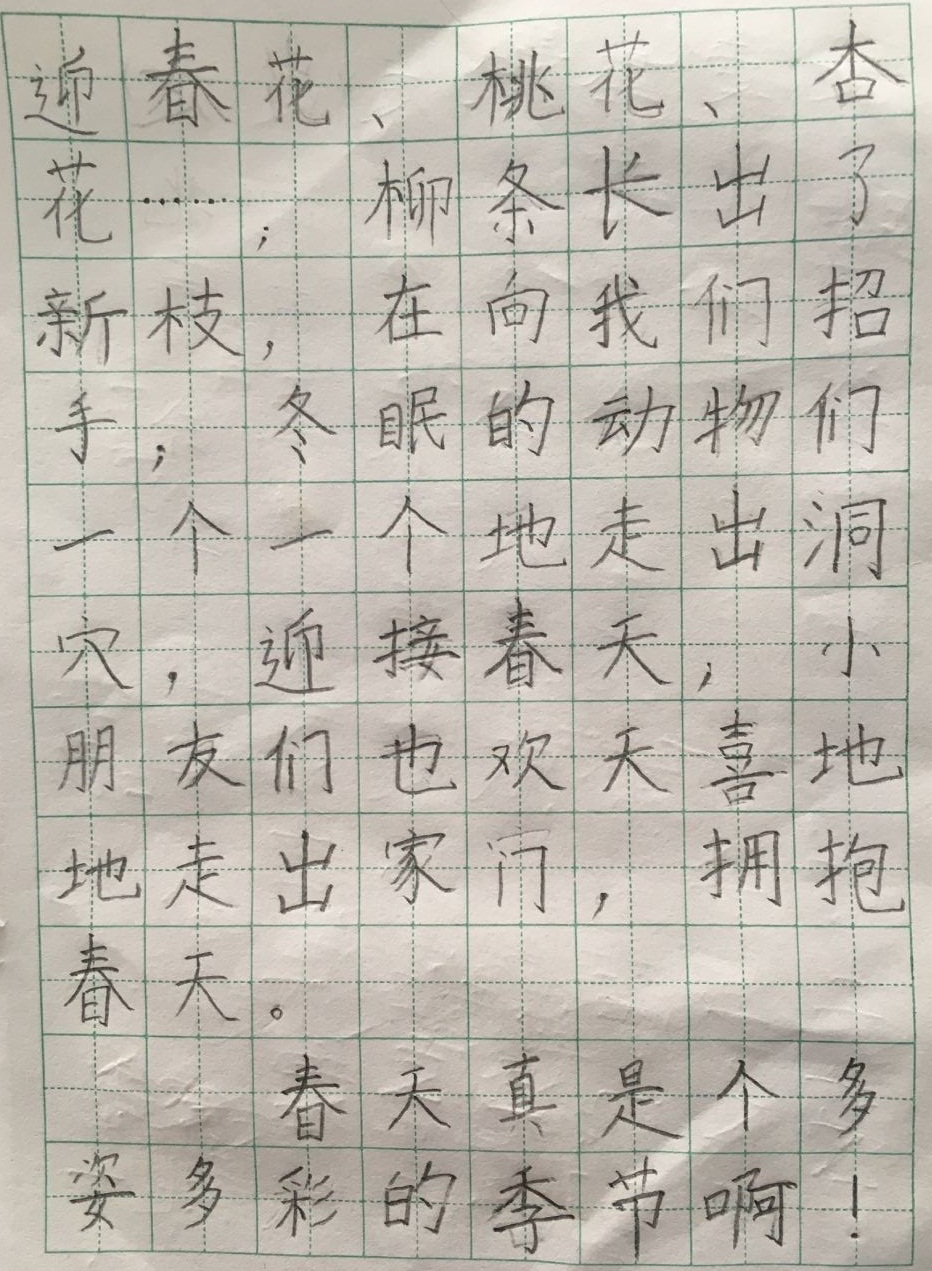 迎春花、桃花、杏
花……；柳条长出了
新枝，在向我们招
手；冬眠的动物们
一个一个地走出洞
穴，迎接春天；小
朋友们也欢天喜地
地走出家门，拥抱
春天。
春天真是个多
姿多彩的季节啊！